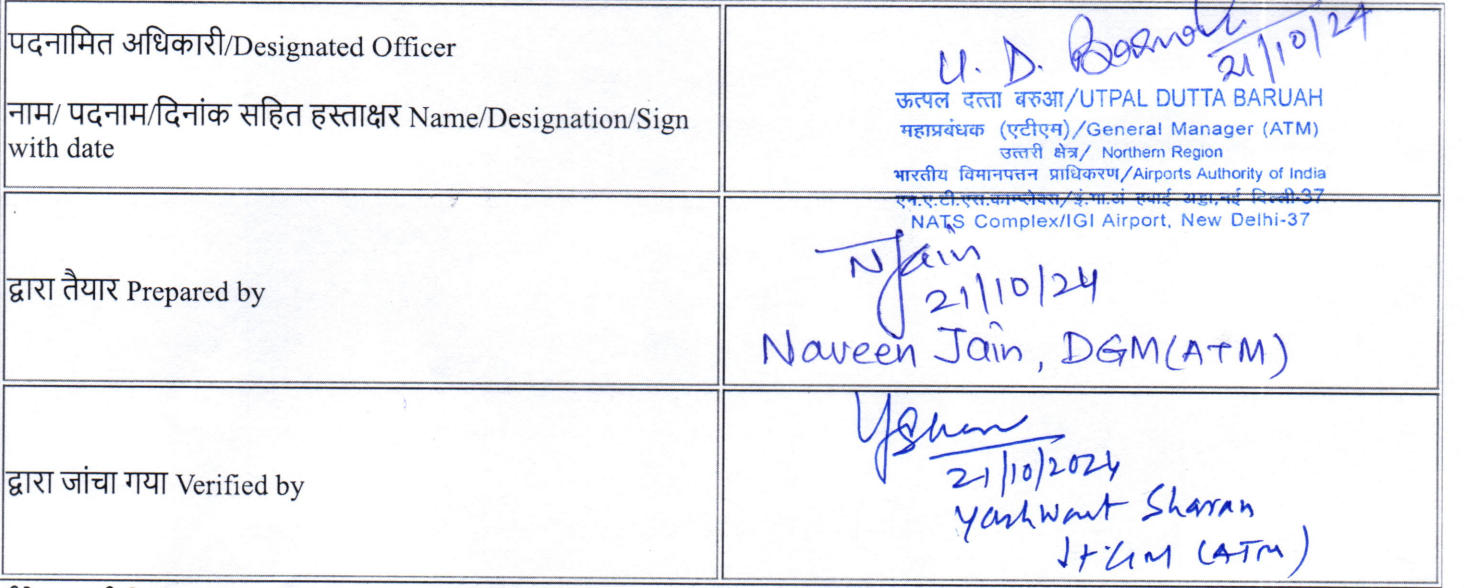 पदनामित अधिकारी/Designated Officer
नाम/ पदनाम/दिनांक सहित हस्ताक्षर Name/Designation/Sign
with date
U. D. Baruah
21/10/24
ऊत्पल दत्ता बरुआ/UTPAL DUTTA BARUAH
महाप्रबंधक (एटीएम)/General Manager (ATM)
उत्तरी क्षेत्र/ Northern Region
भारतीय विमानपत्तन प्राधिकरण/Airports Authority of India
एन.ए.टी.एस.काम्प्लेक्स/इं.गा.अं हवाई अड्डा,नई दिल्ली-37
NATS Complex/IGI Airport, New Delhi-37
द्वारा तैयार Prepared by
NJain
21/10/24
Naveen Jain, DGM(ATM)
द्वारा जांचा गया Verified by
21/10/2024
Yashwant Sharan
Jt.GM (ATM)